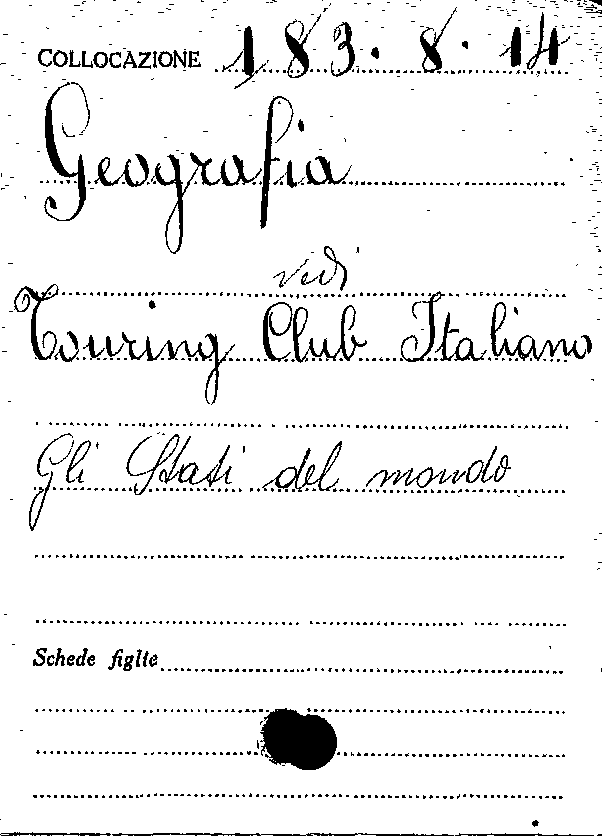 COLLOCAZIONE 183.8.14
Geografia
vedi
Touring Club Italiano
Gli Stati del mondo
Schede figlie